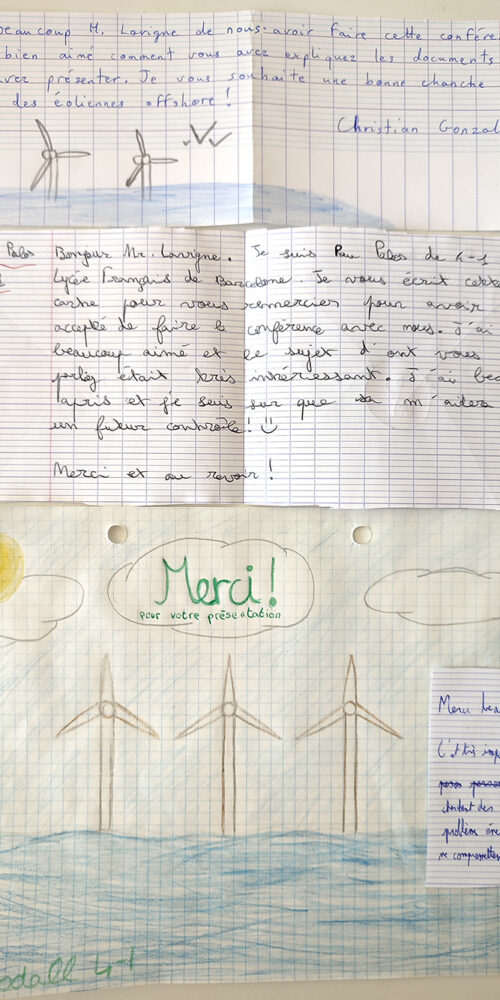 beaucoup M. Lavigne de nous avoir faire cette confére
bien aimé comment vous avez expliquez les documents
vez présenter. Je vous souhaite une bonne chanche
des éoliennes offshore !
Christian Gonzal
Palos Bonjour Mr. Lavigne. Je suis Pau Palos de 4-1
Lycée Français de Barcelone. Je vous écrit cette
carte pour vous remercier pour avoir
accepté de faire la conférence avec nous. J'ai
beaucoup aimé et le sujet d'ont vous
parlez était très intréressant. J'ai bec
apris et j'e suis sur que sa m'aidera
un futur contrôle! ☺
Merci et au revoir !
Merci!
pour votre présentation
Merci bea
C'était imp
problèm
ne compromettre
odall 4-1